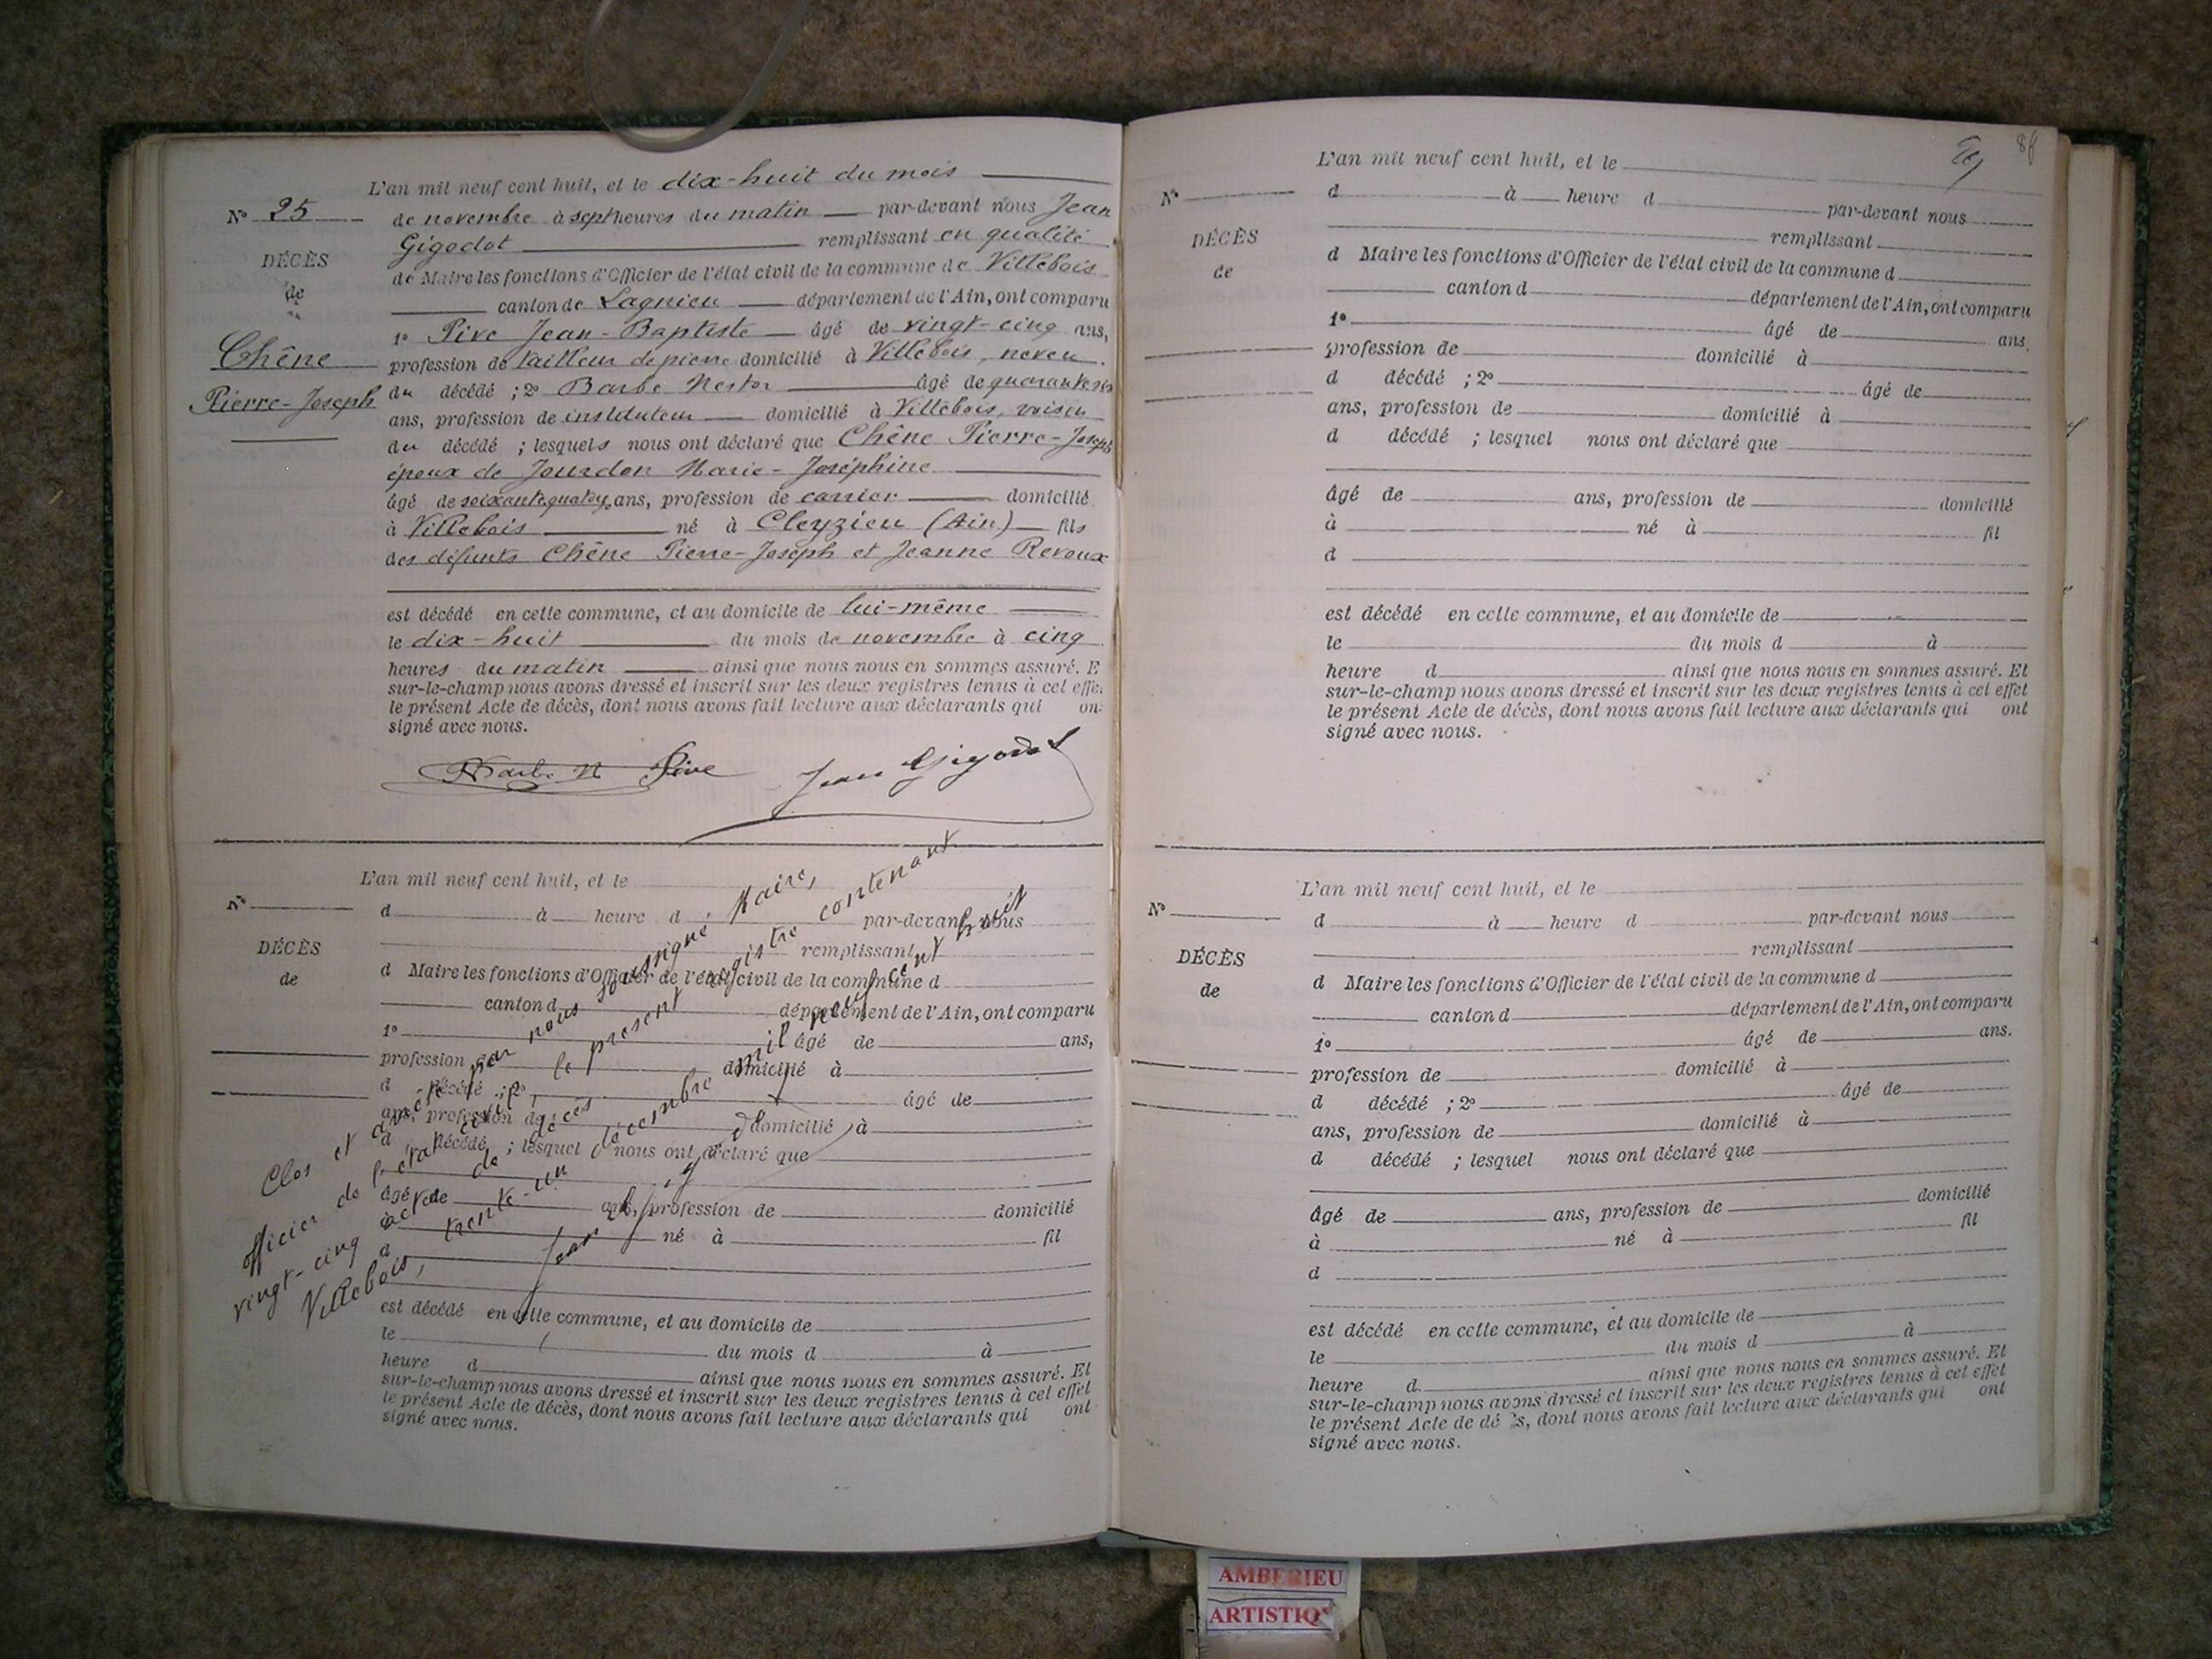 L'an mil neuf cent huit, et le dix-huit du mois
N° 25
de novembre à sept heures du matin par-devant nous Jean
Gigodot remplissant en qualité
DÉCÈS
de
de Maire les fonctions d'Officier de l'état civil de la commune de Villebois
canton de Lagnieu département de l'Ain, ont comparu
1° Pive Jean-Baptiste âgé de vingt-cinq ans,
Chêne
profession de tailleur de pierre domicilié à Villebois, neveu
Pierre-Joseph
du décédé ; 2° Barbe Nestor âgé de quarante
ans, profession de instituteur domicilié à Villebois, voisin
du décédé ; lesquels nous ont déclaré que Chêne Pierre-Joseph
époux de Jourdon Marie-Joséphine
âgé de soixante quatorze ans, profession de carrier domicilié
à Villebois né à Cleyzieu (Ain) fils
des défunts Chêne Pierre-Joseph et Jeanne Revoux
est décédé en cette commune, et au domicile de lui-même
le dix-huit du mois de novembre à cinq
heures du matin ainsi que nous nous en sommes assuré. E
sur-le-champ nous avons dressé et inscrit sur les deux registres tenus à cet effe
le présent Acte de décès, dont nous avons fait lecture aux déclarants qui on
signé avec nous.
Barbe N Pive Jean Gigodot
L'an mil neuf cent huit, et le
N°
d à heure d par-devant nous
remplissant
DÉCÈS
de
d Maire les fonctions d'Officier de l'état civil de la commune d
canton d département de l'Ain, ont comparu
1° âgé de ans,
profession de domicilié à
d décédé ; 2° âgé de
ans, profession de domicilié à
d décédé ; lesquel nous ont déclaré que
âgé de ans, profession de domicilié
à né à fil
d
est décédé en cette commune, et au domicile de
le du mois d à
heure d ainsi que nous nous en sommes assuré. Et
sur-le-champ nous avons dressé et inscrit sur les deux registres tenus à cet effet
le présent Acte de décès, dont nous avons fait lecture aux déclarants qui ont
signé avec nous.
Clos et arrêté par nous soussigné Maire,
officier de l'état civil, le présent registre contenant
vingt-cinq actes de décès
Villebois, trente-un décembre mil neuf cent huit
Jean Gigodot
86
L'an mil neuf cent huit, et le
N°
d à heure d par-devant nous
remplissant
DÉCÈS
de
d Maire les fonctions d'Officier de l'état civil de la commune d
canton d département de l'Ain, ont comparu
1° âgé de ans.
profession de domicilié à
d décédé ; 2° âgé de
ans, profession de domicilié à
d décédé ; lesquel nous ont déclaré que
âgé de ans, profession de domicilié
à né à fil
d
est décédé en cette commune, et au domicile de
le du mois d à
heure d ainsi que nous nous en sommes assuré. Et
sur-le-champ nous avons dressé et inscrit sur les deux registres tenus à cet effet
le présent Acte de décès, dont nous avons fait lecture aux déclarants qui ont
signé avec nous.
L'an mil neuf cent huit, et le
N°
d à heure d par-devant nous
remplissant
DÉCÈS
de
d Maire les fonctions d'Officier de l'état civil de la commune d
canton d département de l'Ain, ont comparu
1° âgé de ans.
profession de domicilié à
d décédé ; 2° âgé de
ans, profession de domicilié à
d décédé ; lesquel nous ont déclaré que
âgé de ans, profession de domicilié
à né à fil
d
est décédé en cette commune, et au domicile de
le du mois d à
heure d ainsi que nous nous en sommes assuré. Et
sur-le-champ nous avons dressé et inscrit sur les deux registres tenus à cet effet
le présent Acte de dé s, dont nous avons fait lecture aux déclarants qui ont
signé avec nous.
AMBERIEU
ARTISTIQ